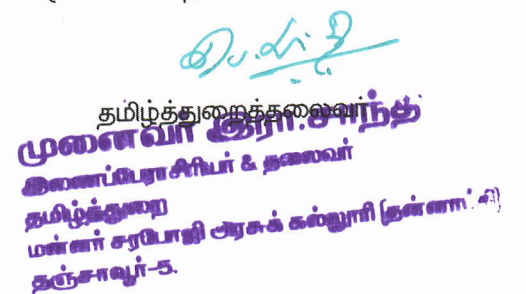 தமிழ்த்துறைத்தலைவர்
முனைவர் இரா. சாந்தி
இணைப்பேராசிரியர் & தலைவர்
தமிழ்த்துறை
மன்னர் சரபோஜி அரசுக் கல்லூரி (தன்னாட்சி)
தஞ்சாவூர்-5.